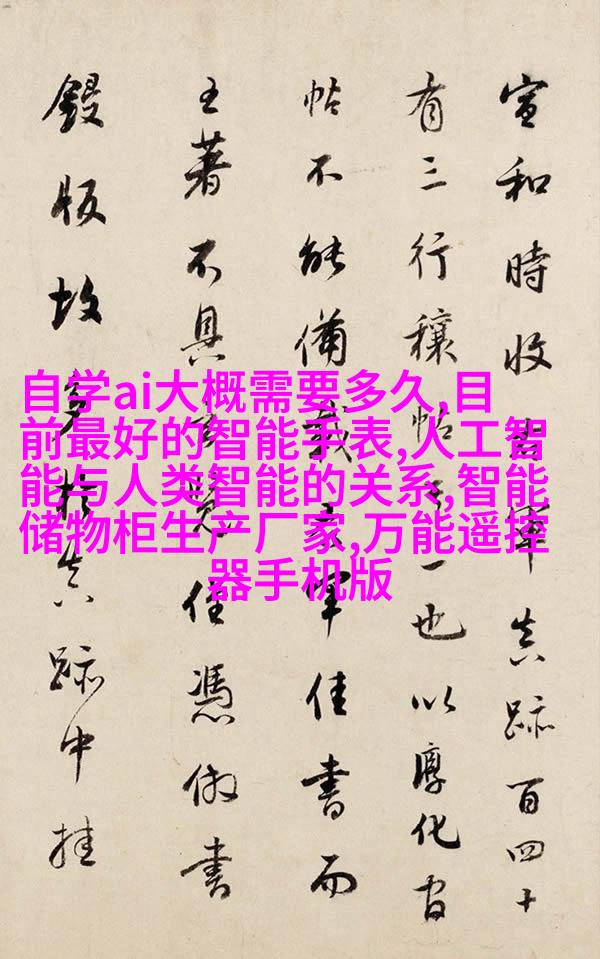 宣和時收軍真跡百四十
有三行穰帖一也以淳化官
帖不能備載佳書而
王著不具覽但憑倣書
鋟版故真跡中挂
自学ai大概需要多久,目
前最好的智能手表,人工智
能与人类智能的关系,智能
储物柜生产厂家,万能遥控
器手机版